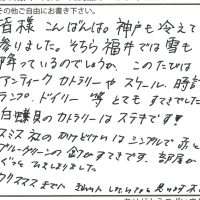 その他ご自由にお書き下さい。
皆様 こんばんは。神戸も冷えて
参りました。そちら福井では雪も
降っているのでしょうか。このたびは
アンティークカトラリーや スケール、時計
ランプ、ドイリー 等 とても すてきでした
白蝶貝のカトラリーは ステキです!!
スミス社の かけどけいは シンプルで 赤と
ブルーグリーンの 金がすてきです。部屋が
ぐっと
クリスマス